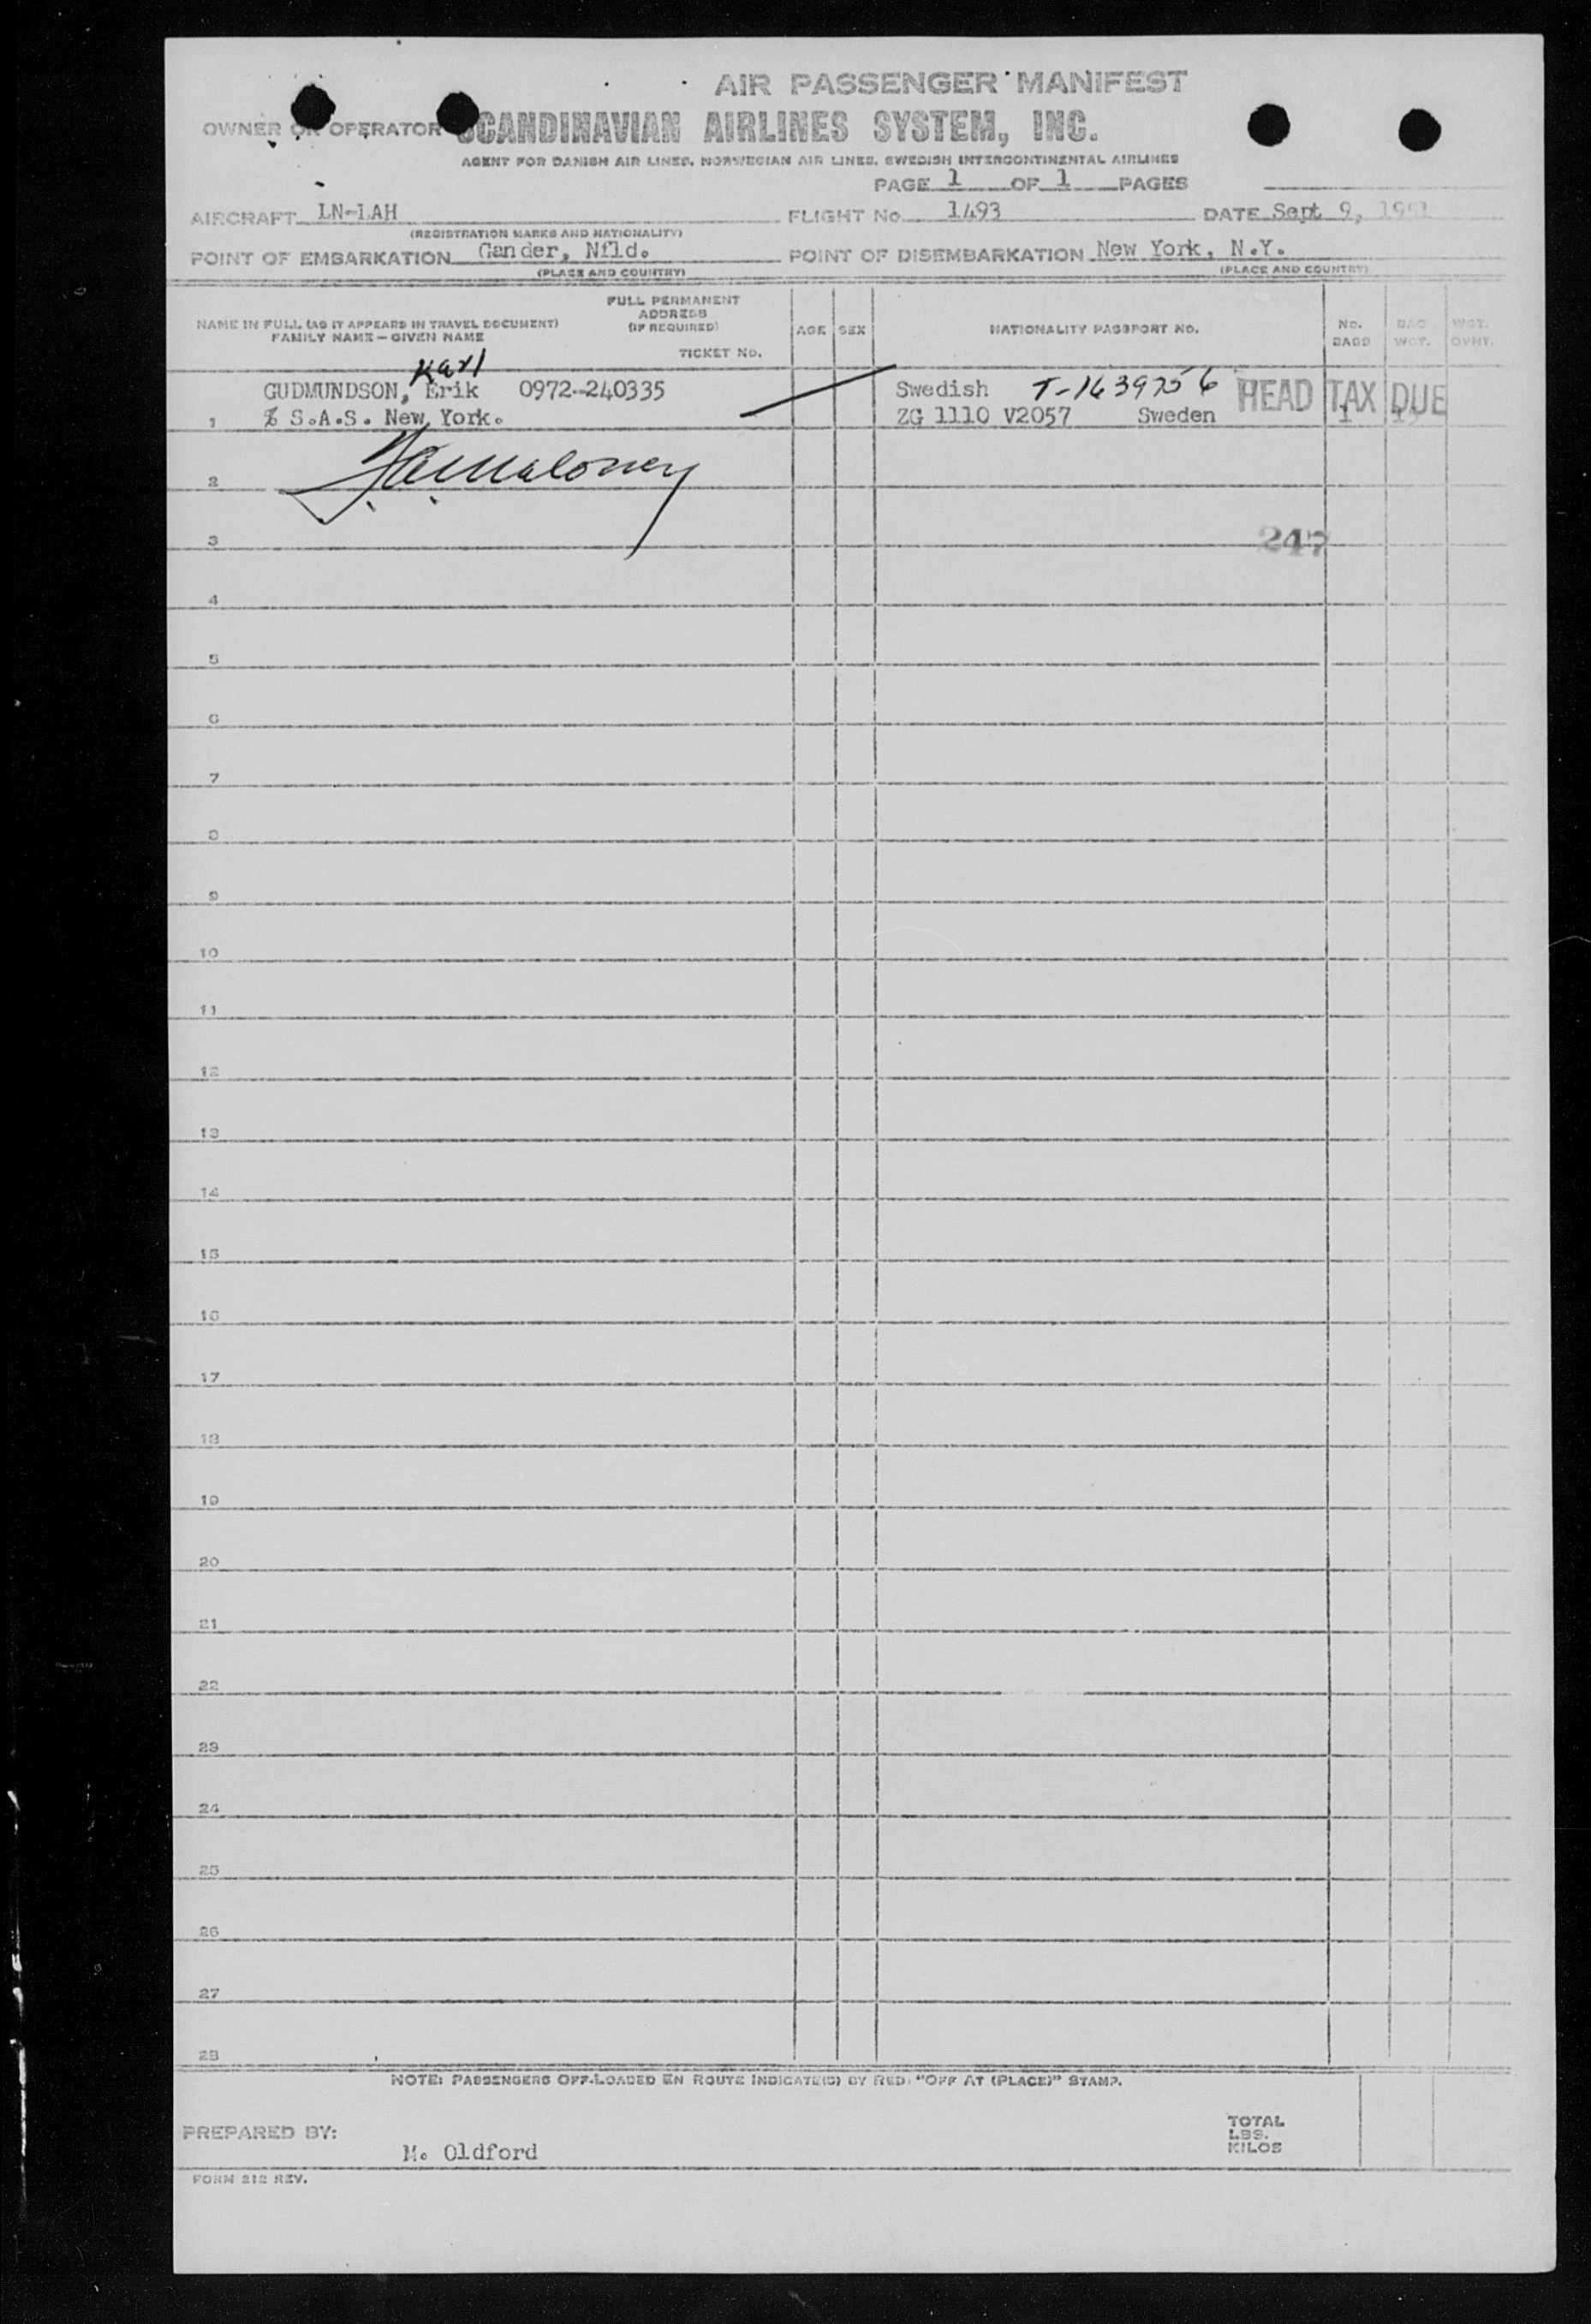 AIR PASSENGER MANIFEST
OWNER OR OPERATOR SCANDINAVIAN AIRLINES SYSTEM, INC.
AGENT FOR DANISH AIR LINES, NORWEGIAN AIR LINES, SWEDISH INTERCONTINENTAL AIRLINES
PAGE 1 OF 1 PAGES
AIRCRAFT LN-LAH FLIGHT No. 1493 DATE Sept 9, 1951
(REGISTRATION MARKS AND NATIONALITY)
POINT OF EMBARKATION Gander, Nfld. POINT OF DISEMBARKATION New York, N.Y.
(PLACE AND COUNTRY) (PLACE AND COUNTRY)
NAME IN FULL (AS IT APPEARS IN TRAVEL DOCUMENT) FAMILY NAME — GIVEN NAME
FULL PERMANENT ADDRESS (IF REQUIRED)
TICKET No.
AGE SEX NATIONALITY PASSPORT NO. No. BAGS BAG WGT. WGT. OVHT.
Karl
GUDMUNDSON, Erik 0972-240335 Swedish T-1639756 HEAD TAX DUE
1 % S.A.S. New York. ZG 1110 V2057 Sweden 1
2 Maloney
3 247
4
5
6
7
8
9
10
11
12
13
14
15
16
17
18
19
20
21
22
23
24
25
26
27
28
NOTE: PASSENGERS OFF-LOADED EN ROUTE INDICATE(D) BY RED "OFF AT (PLACE)" STAMP.
PREPARED BY: M. Oldford
TOTAL
LBS.
KILOS
FORM 212 REV.